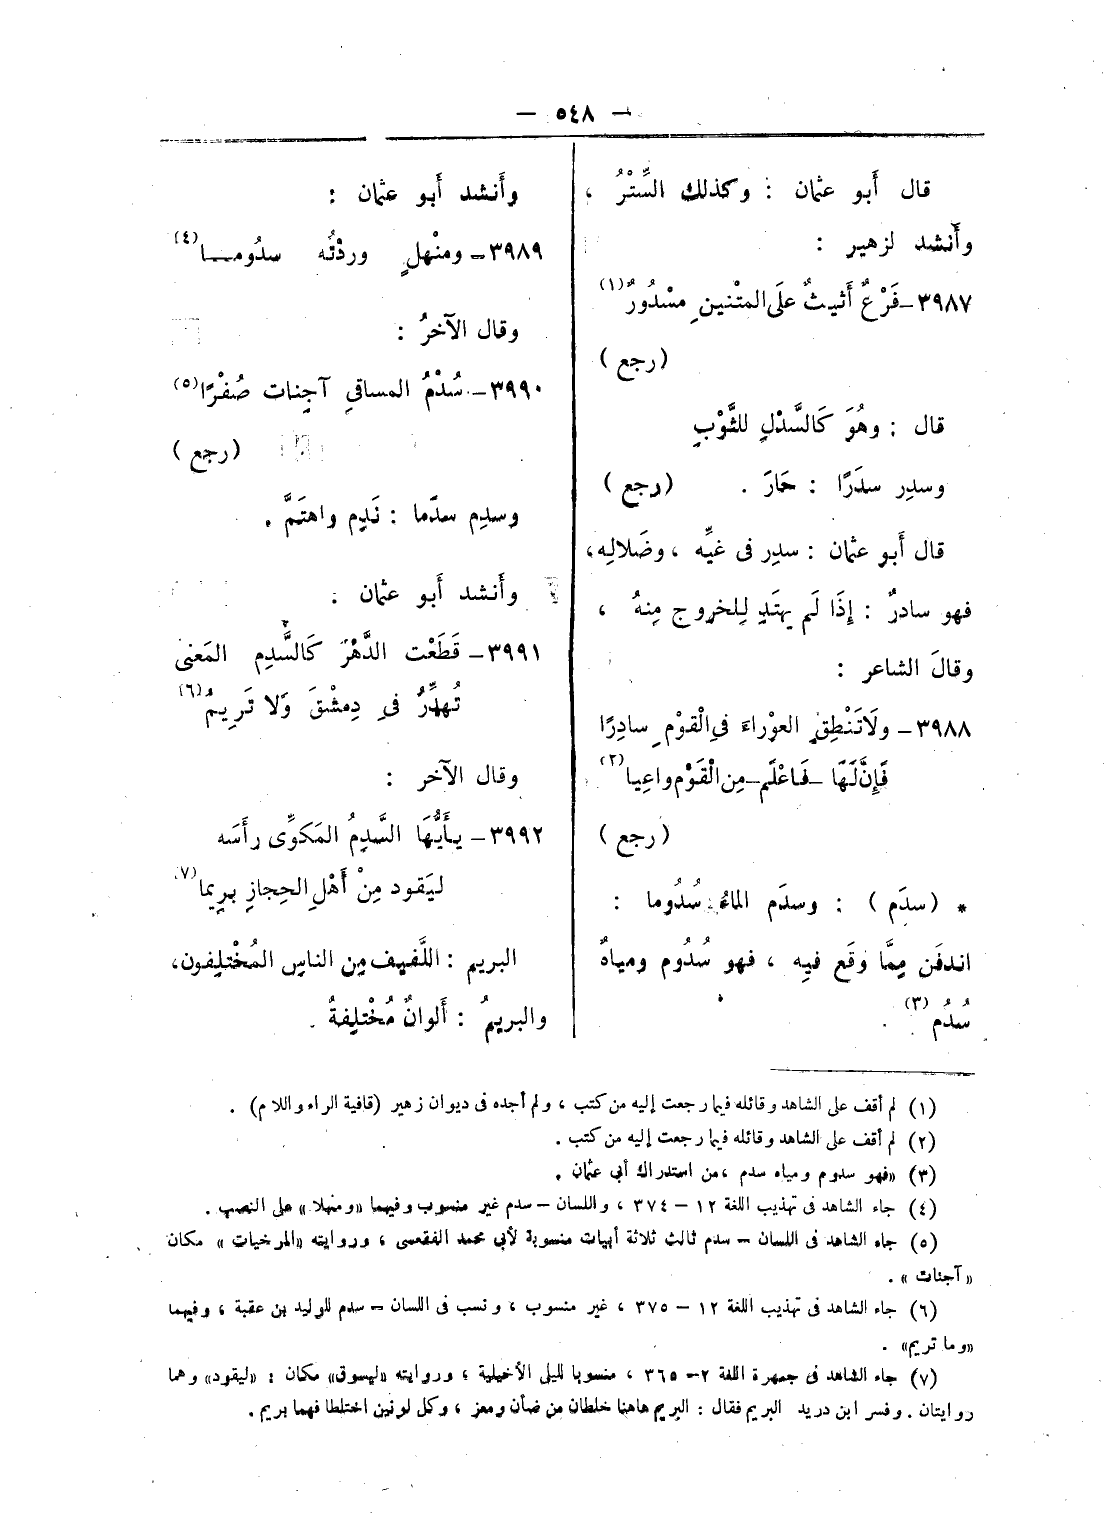 — ٥٤٨ —
قال أَبو عثمان : وكذلك السِّتْرُ ،
وأَنشد لزهير :
٣٩٨٧ــ فَرْعٌ أَثيثٌ علَى المتْنينِ مسْدُورٌ(١)
(رجع)
قال : وهُوَ كَالسَّدْلِ للثَّوْبِ
وسدِر سدَرًا : حَارَ . (رجع)
قال أَبو عثمان : سدِر فى غيِّه ، وضَلالِه،
فهو سادرٌ : إِذَا لَم يهتَدِ لِلخروج مِنهُ ،
وقالَ الشاعر :
٣٩٨٨ – ولَاتَنْطِقِ العوْراءَ فىِ الْقوْمِ سادِرًا
فَإِنَّ لَهَا –فَاعْلَم– مِن الْقَوْم واعِيا(٢)
(رجع)
* (سدَم) : وسدَم الماءُ سُدُوما :
اندفَن مِمَّا وَقَع فيِه ، فهو سُدُوم ومياهٌ
سُدُم (٣) .
وأَنشد أَبو عثمان :
٣٩٨٩ــ ومنْهلٍ وردْتُه سدُومــا(٤)
وقال الآخرُ :
٣٩٩٠ــ سُدْمُ المساقىِ آجِنات صُفْرًا(٥)
(رجع)
وسدِم سدَما : نَدِم واهتَمَّ .
وأَنشد أَبو عثمان :
٣٩٩١ــ قَطَعْت الدَّهْرَ كَالسَّدِم المَعنىَّ
تُهدِّرُ فىِ دِمشْقَ وَلا تَرِيمُ(٦)
وقال الآخر :
٣٩٩٢ــ يأَيُّهَا السَّدِمُ المَكوِّى رأسَه
ليَقود مِنْ أَهْلِ الحِجازِ برِيما(٧)
البريم : اللَّفيف مِن الناس المُخْتلِفون،
والبريمُ : أَلوانٌ مُخْتلِفةٌ .
(١) لم أقف على الشاهد وقائله فيما رجعت إليه من كتب ، ولم أجده فى ديوان زهير (قافية الراء واللام) .
(٢) لم أقف على الشاهد وقائله فيما رجعت إليه من كتب .
(٣) «فهو سدوم ومياه سدم ،من استدراك أبى عثمان .
(٤) جاء الشاهد فى تهذيب اللغة ١٢ – ٣٧٤ ، واللسان – سدم غير منسوب وفيهما «ومنهلا» على النصب .
(٥) جاء الشاهد فى اللسان – سدم ثالث ثلاثة أبيات منسوبة لأبى محمد الفقعسى ، وروايته «المرخيات» مكان
«آجنات» .
(٦) جاء الشاهد فى تهذيب اللغة ١٢ – ٣٧٥ ، غير منسوب ، ونسب فى اللسان – سدم للوليد بن عقبة ، وفيهما
«وما تريم» .
(٧) جاء الشاهد فى جمهرة اللغة ٢– ٣٦٥ ، منسوبا لليلى الأخيلية ، وروايته «ليسوق» مكان : «ليقود» وهما
روايتان . وفسر ابن دريد البريم فقال : البريم هاهنا خلطان من ضأن ومعز ، وكل لونين اختلطا فهما بريم .